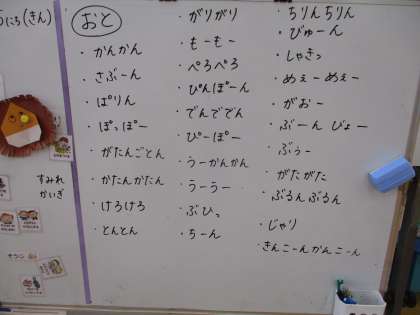 うにろ(きん)
おと
・かんかん
・さぶーん
・ぱりん
・ぽっぽー
・がたんごとん
・かたんかたん
・けろけろ
・とんとん
・がりがり
・もーもー
・ぺろぺろ
・ぴんぽーん
・でんででん
・ぴーぽー
・うーかんかん
・うーうー
・ぶひっ
・ちーん
・ちりんちりん
・びゅーん
・しゃきっ
・めぇーめぇー
・がおー
・ぶーん びょー
・ぶぅー
・がたがた
・ぶるんぶるん
・じゃり
・きんこーんかんこーん
すみれ
かいぎ